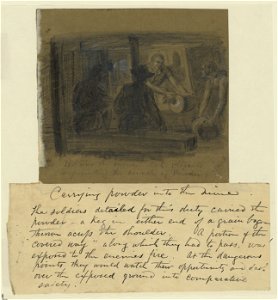 Carrying powder into the mine
The soldiers detailed for this duty carried the
powder in a keg in either end of a grain bag
thrown across the shoulder. A portion of the
"covered way" along which they had to pass, was
exposed to the enemies fire. At the dangerous
points they would watch their opportunity and
over the exposed ground into comparative
safety.